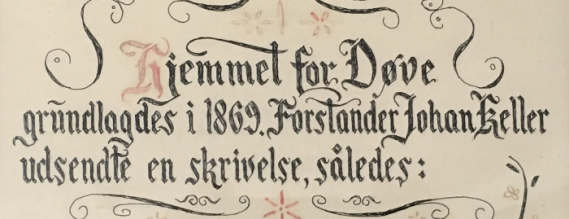 Hjemmet for Døve
grundlagdes i 1869. Forstander Johan Keller
udsendte en skrivelse, således: